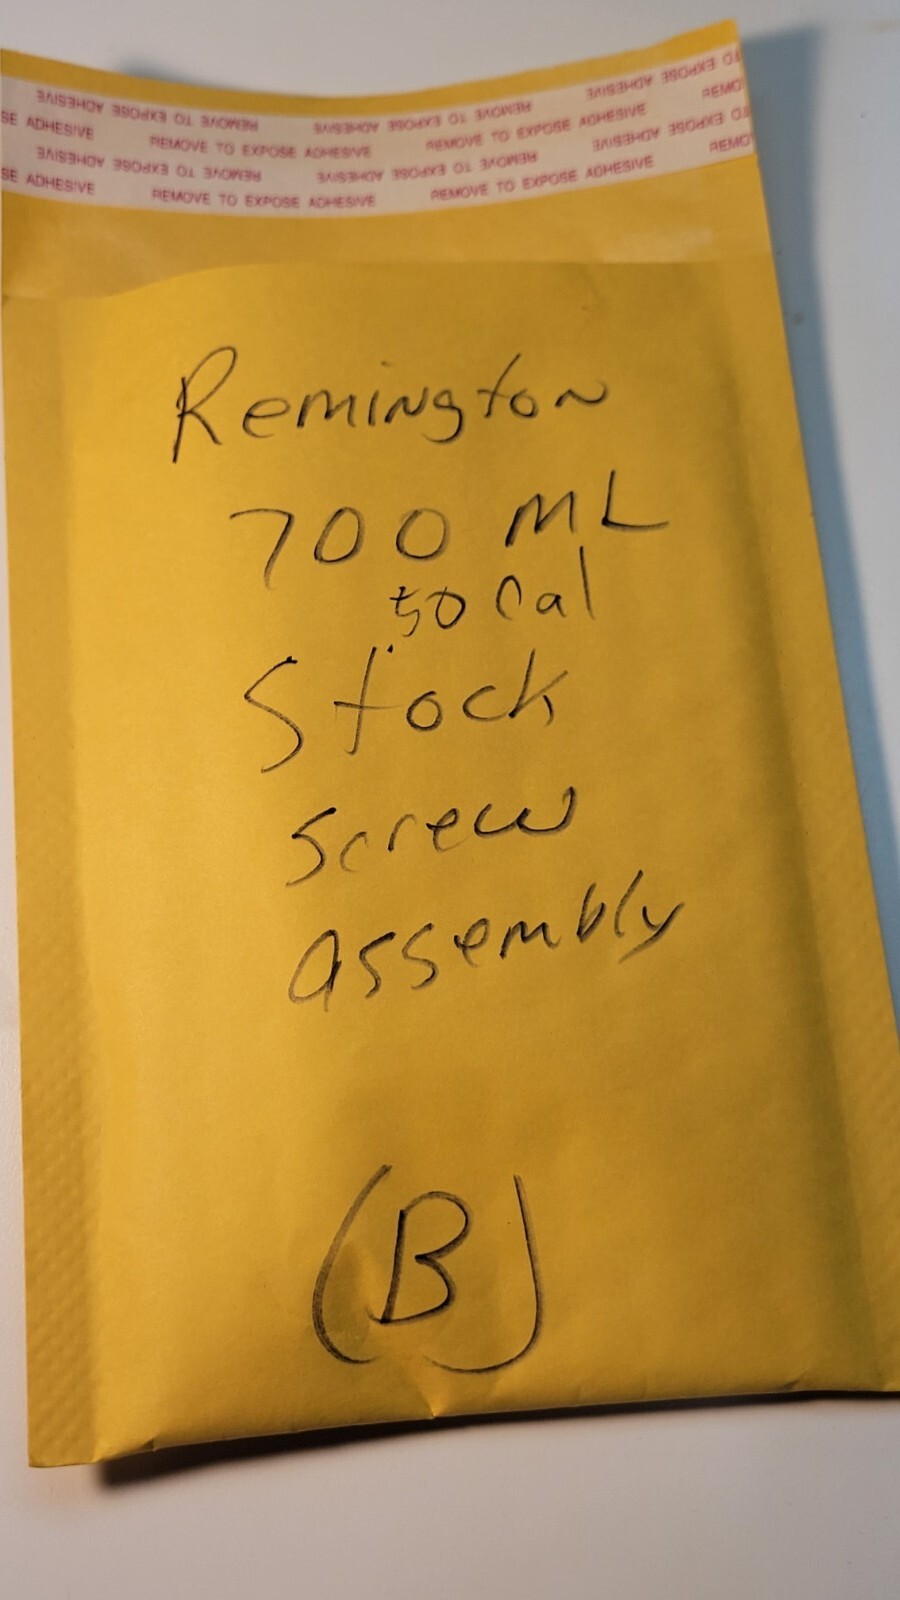 REMOVE TO EXPOSE ADHESIVE REMOVE TO EXPOSE ADHESIVE REMOVE TO EXPOSE ADHESIVE
SE ADHESIVE REMOVE TO EXPOSE ADHESIVE REMOVE TO EXPOSE ADHESIVE REMO
REMOVE TO EXPOSE ADHESIVE REMOVE TO EXPOSE ADHESIVE TO EXPOSE ADHESIVE
SE ADHESIVE REMOVE TO EXPOSE ADHESIVE REMOVE TO EXPOSE ADHESIVE REMO
Remington
700 ML
50 Cal
Stock
Screw
assembly
(B)